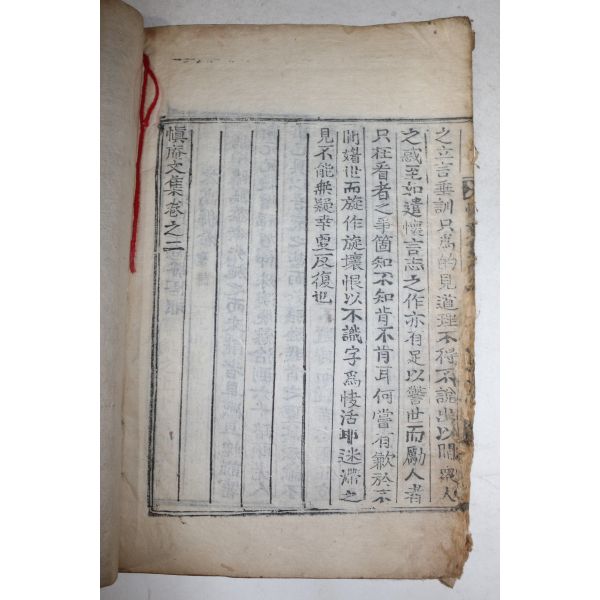 之立言垂訓只為的見道理不得不說出以開眾人
之惑至如遣懷言志之作亦有足以警世而勵人者
只在看者之爭箇知不知肯不肯耳何嘗有歉於不
閒婼世而旋作旋壞恨以不識字為悽活耶迷滯之
見不能無疑幸更反復也
愼庵文集卷之二